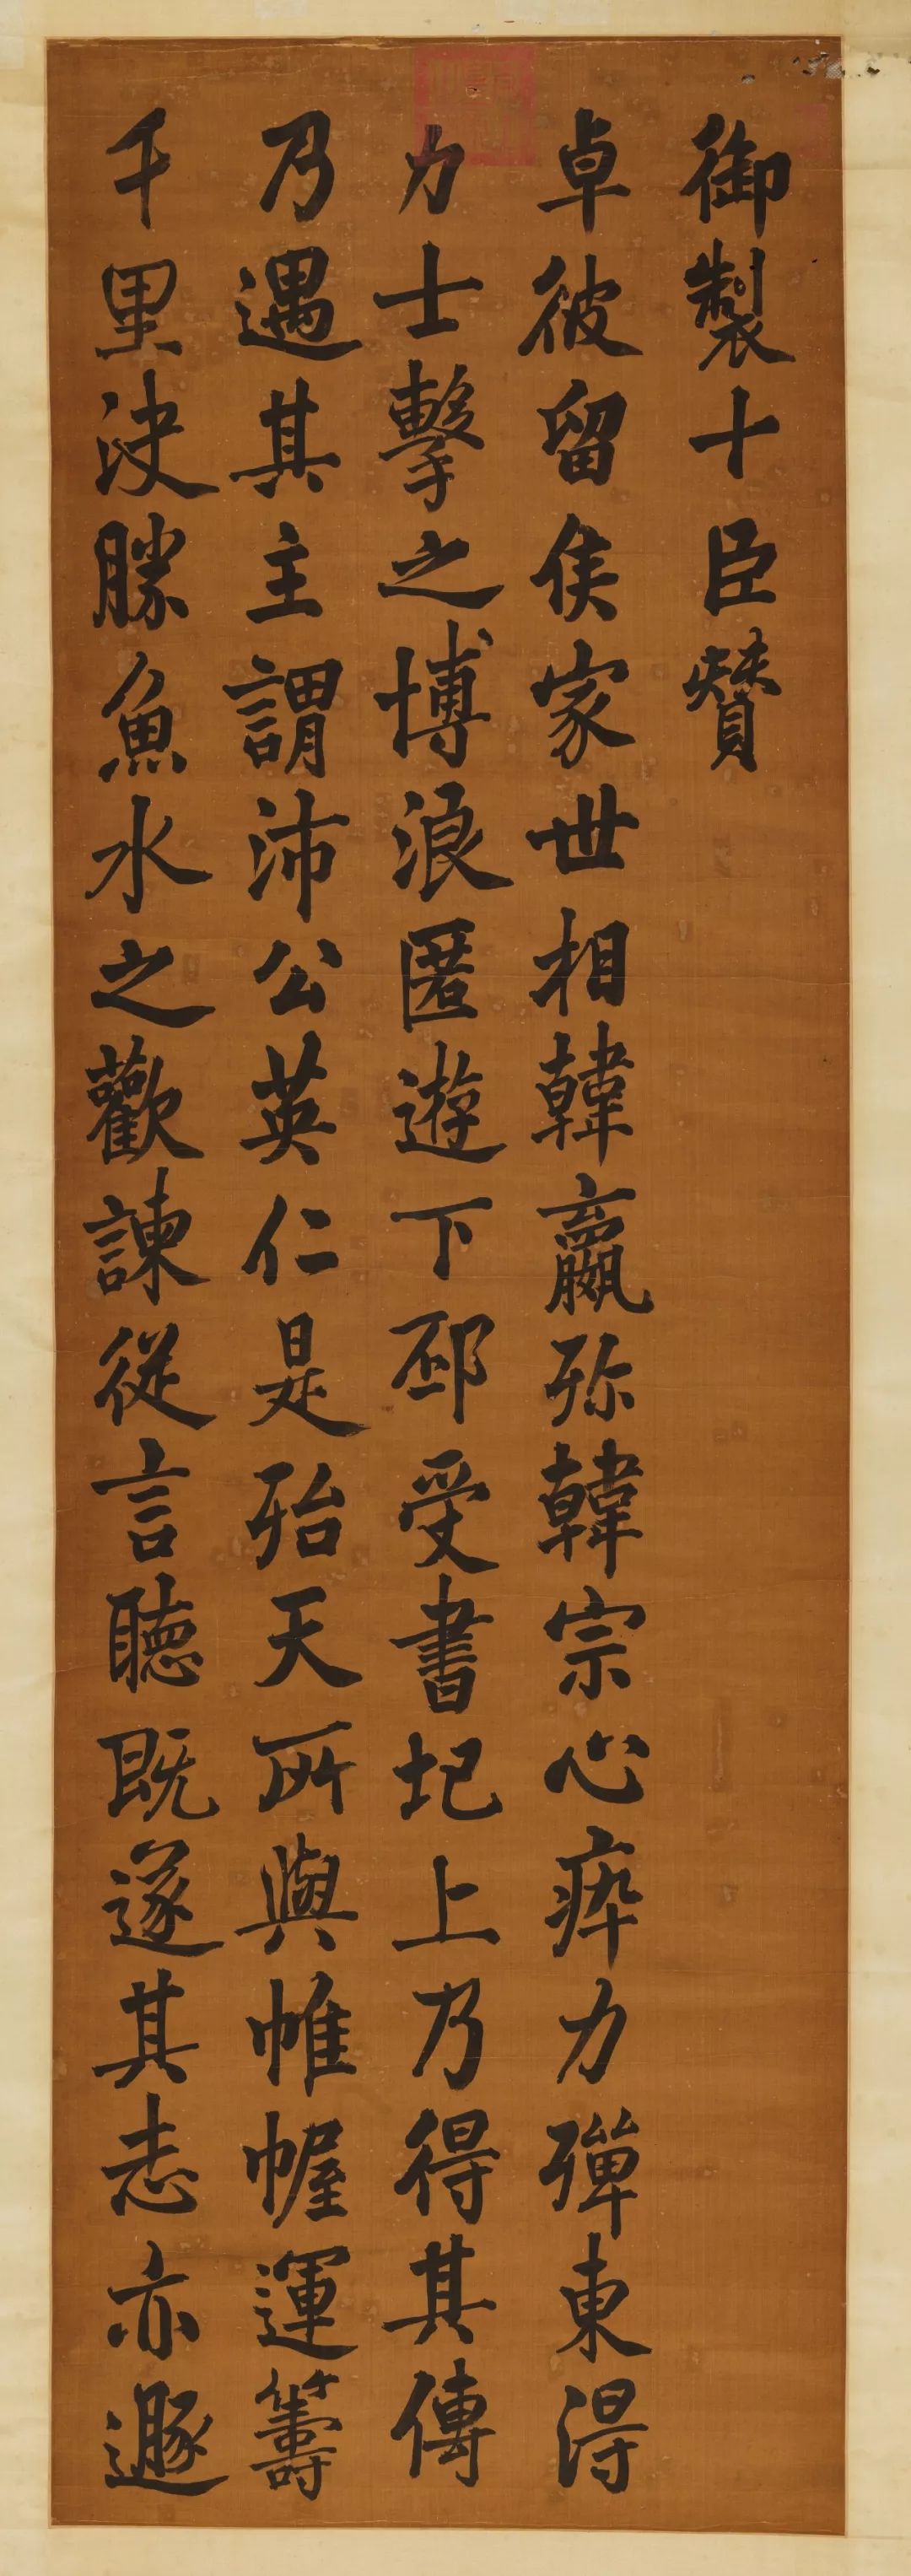 御製十臣贊
卓彼留侯家世相韓嬴殄韓宗心瘁力殫東得
力士擊之博浪匿遊下邳受書圯上乃得其傳
乃遇其主謂沛公英仁是殆天所與帷幄運籌
千里決勝魚水之歡諫從言聽既遂其志亦遯